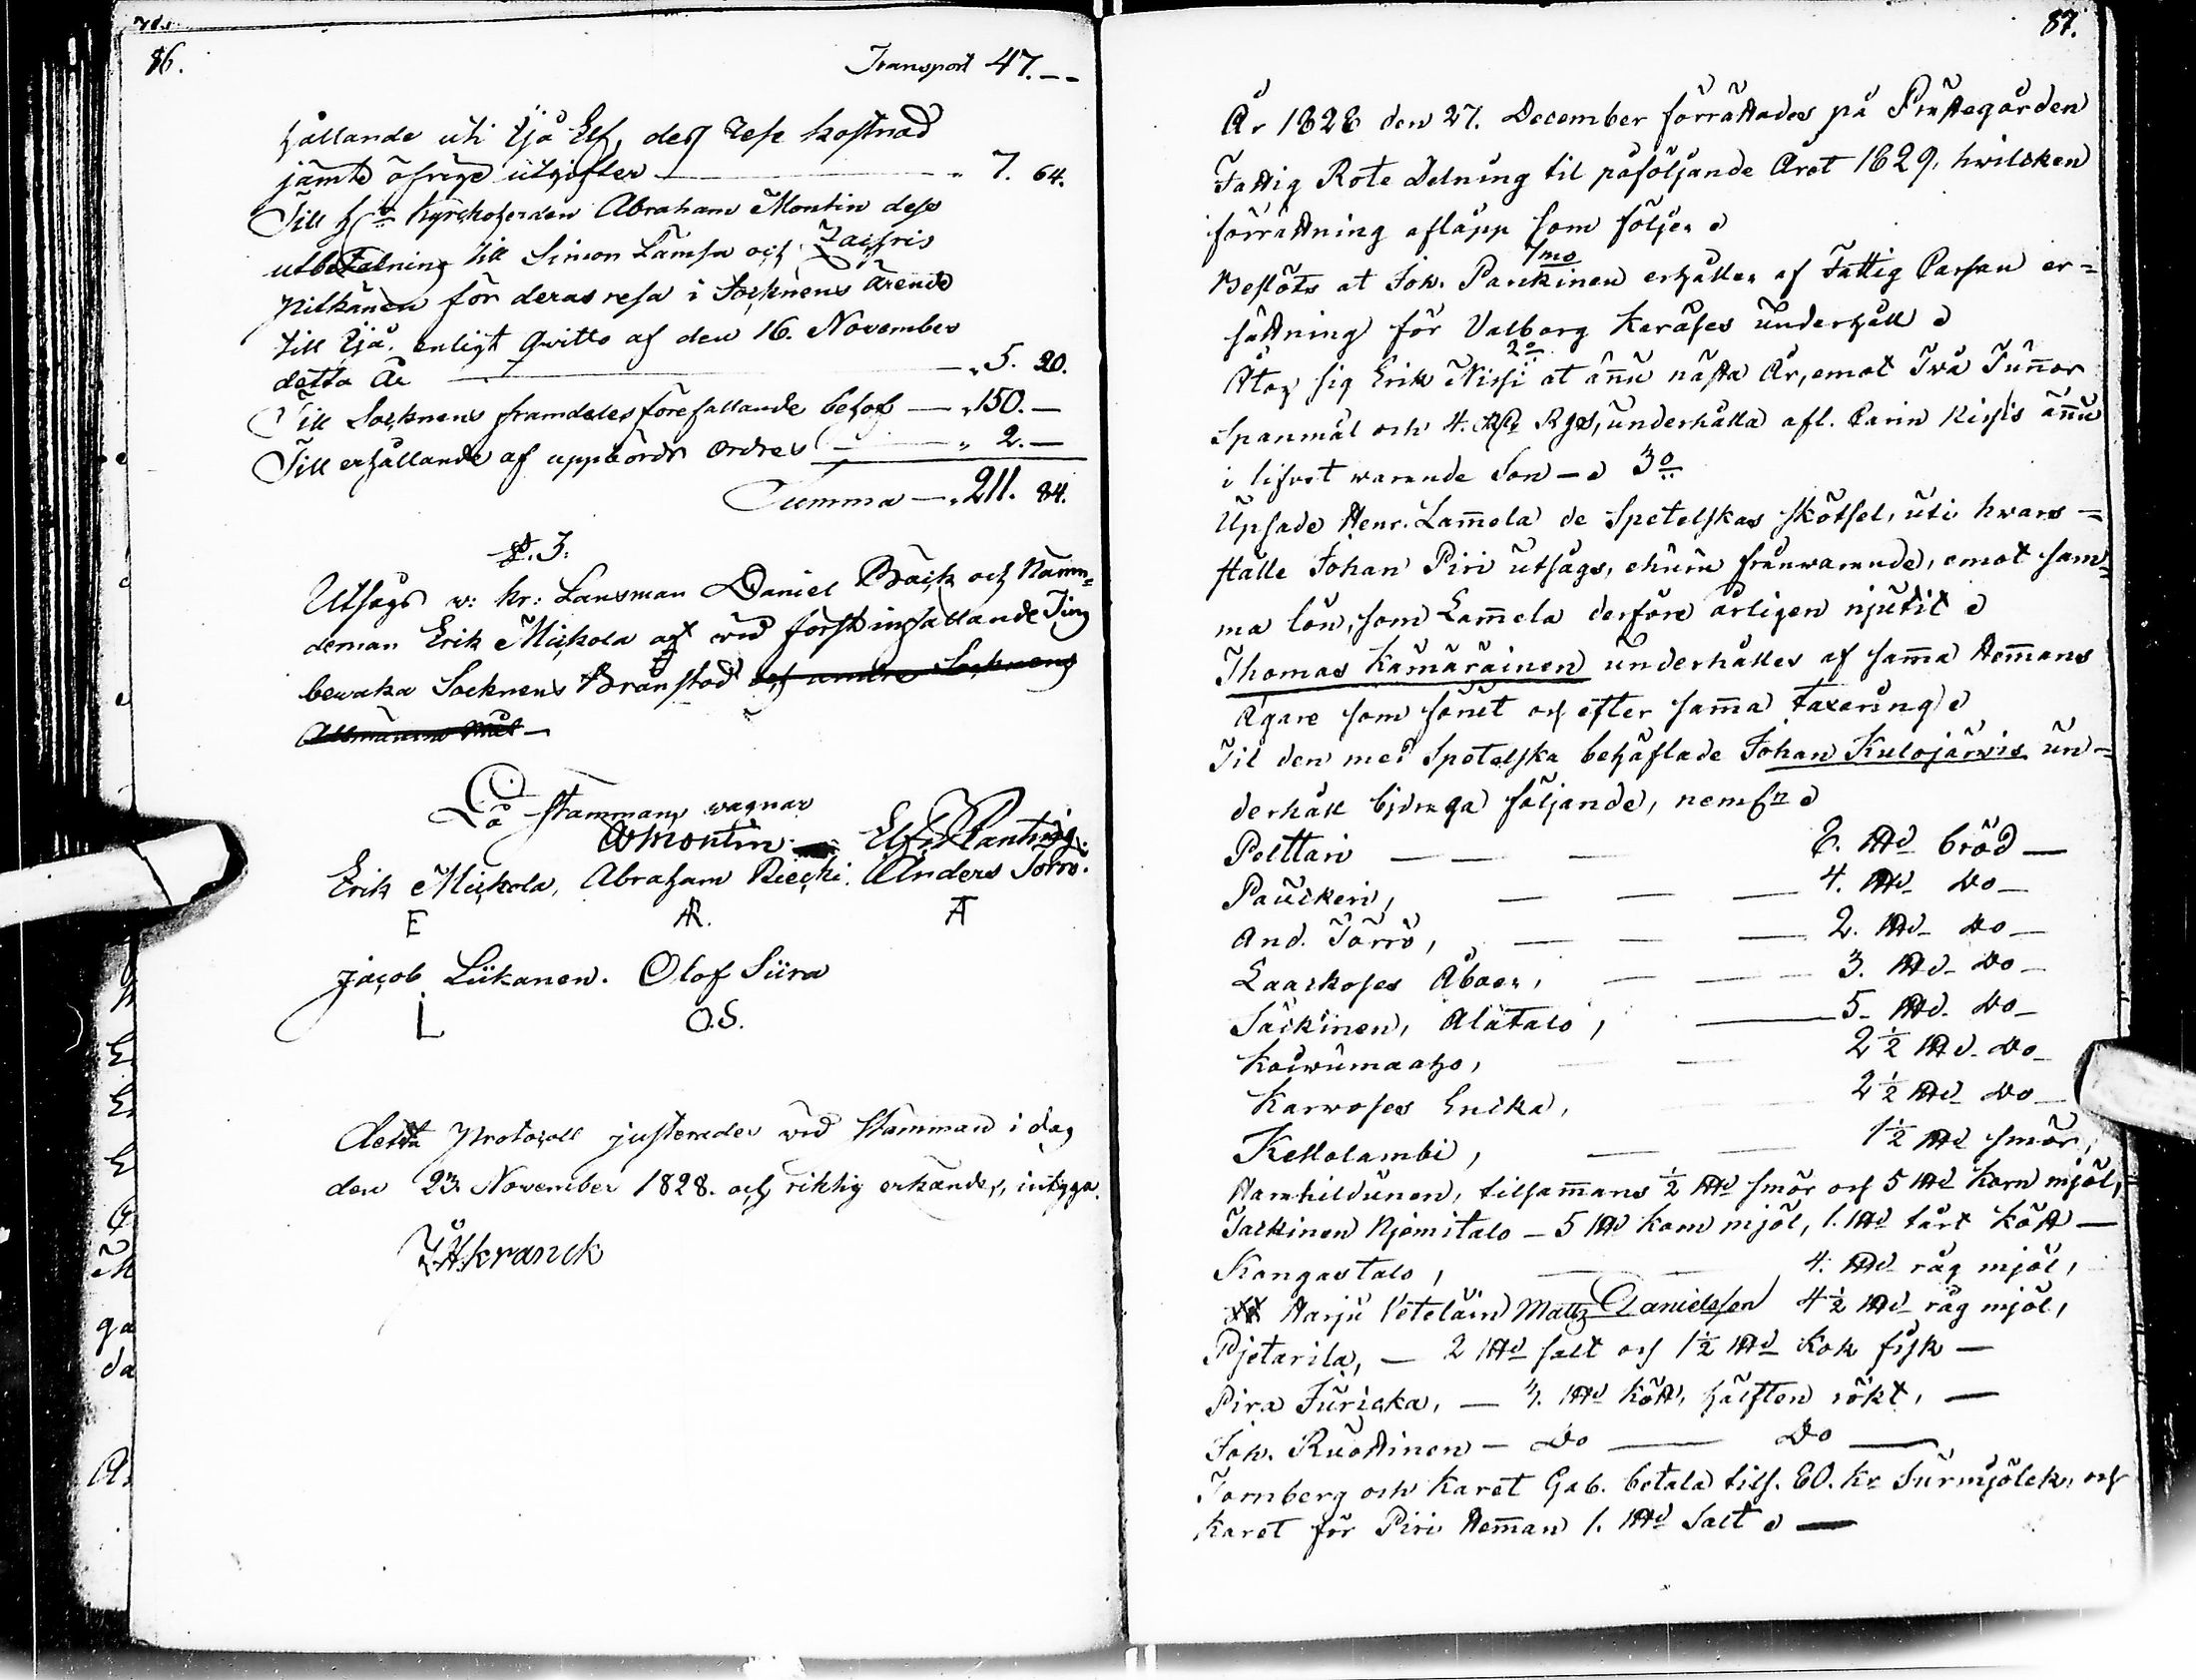 86.
Transport 47.--
hållande uti Ijå Elf, dess rese kostnad
jämte öfrige utgifter — " 7. 64.
Till Hr Kyrckoherden Abraham Montin dess
utbetalning till Simon Lämsä och Zachris
Pitkänen för deras resa i Socknens ärende
till Ijå, enligt qvitto af den 16. November
detta År — " 5. 20.
Till Socknens framdeles förefallande behof — " 150.—
Till erhållande af uppbörds ordres — " 2.—
Summa — " 211. 84.
§. 3.
Utsågs v: Kr: Länsman Daniel Bäck och Nämn=
deman Erik Mickola att vid först infallande Ting
bevaka Socknens Brånstod och andre Socknens
Allmänna Mål —
På Stämmans vägnar
A Montin. Elf. Planting.
Erik Mickola, Abraham Riecki. Anders Törrö.
E AR. A
Jacob Liikanen. Olof Siira
L O.S.
Detta Protocoll justerades vid Stämman i dag
den 23 November 1828. och riktig erkändes, intygga.
Z. H. Kranck
87.
År 1828 den 27. December förrättades på Prästegården
Fattig Rote Delning til påföljande Året 1829, hvilcken
förrättning aflåpp som följer
1mo
Beslöts at Joh. Parckinen erhåller af Fattig Cassan er=
sättning för Valborg Keräses underhåll
2o
Åtog sig Erik Nissi at ännu nästa År, emot Två Tunnor
Spanmål och 4. Rgs, underhålla afl. Carin Kishis ännu
i lifvet warande Son — 3o
Upsade Henr. Lammela de Spetelskas skötsel, uti hvars =
ställe Johan Piri utsågs, ehuru frånvarande, emot sam=
ma lön, som Lammela derföre årligen njutit
Thomas Kämäräinen underhålles af samma Hemmans
Ägare som förut och efter samma taxering
Til den med Spetelska behäftade Johan Kulojärvis un=
derhåll bidraga följande, nemln
Polttari — — — 6. bröd —
Pauckeri, — — — 4. Do —
And. Törrö, — — — 2. Do —
Laarkoses Åboer, — — 3. Do —
Säckinen, Alatalo, — 5. Do —
Koiwumaaho, — 2 1/2 Do —
Karwoses Encka, — 2 1/2 Do —
Kellolambi, — — 1 1/2 smör,
Hamhildunen, tilsammans 1/2 smör och 5 Korn mjöl,
Säckinen Njemitalo — 5 Korn mjöl, 1. tårt kött —
Kangastalo, — — 4. råg mjöl,
Harju Veteläin Matts Danielsson 4 1/2 råg mjöl,
Pjetarila, — 2 salt och 1 1/2 Kok fisk —
Pira Juricka, — 3. kött, hälften rökt, —
Joh. Ruottinen — Do — Do —
Tornberg och Karet Gab. betala tills. 60. Kr Surmjölck, och
Karet för Piri Hemman 1. Salt —